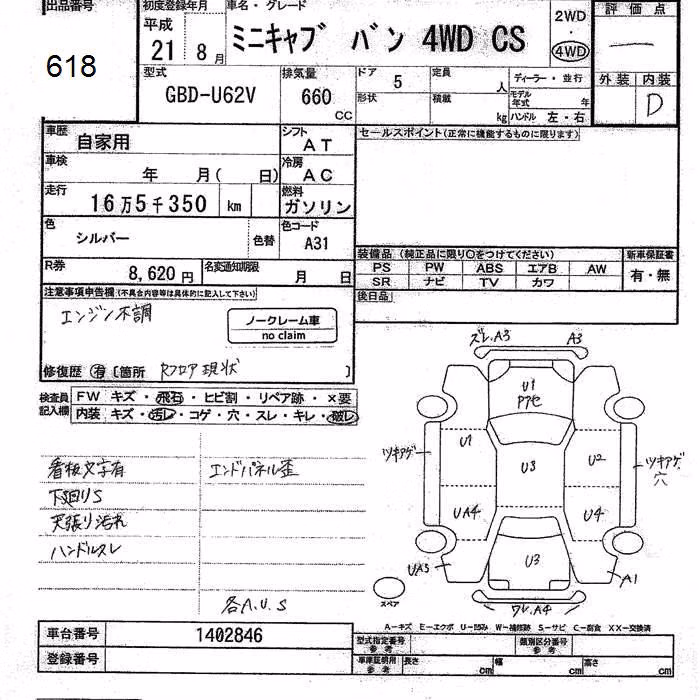 出品番号
618
初度登録年月
平成
21 8月
車名・グレード
ミニキャブ バン 4WD CS
2WD
・
4WD
評価点
外装 内装
D
型式
GBD-U62V
排気量
660
CC
ドア
5
形状
定員
人
積載
kg
ディーラー・並行
モデル年式 年
ハンドル 左・右
車歴
自家用
シフト
AT
セールスポイント(正常に機能するものに限ります)
車検
年 月( 日)
冷房
AC
走行
16万5千350 km
燃料
ガソリン
色
シルバー
色替
色コード
A31
装備品 (純正品に限り○をつけてください)
新車保証書
PS PW ABS エアB AW
SR ナビ TV カワ
有・無
R券
8,620円
名変通知期限
月 日
後日品
注意事項申告欄(不具合内容等は具体的に記入して下さい)
エンジン不調
ノークレーム車
no claim
修復歴 有 [箇所 Rフロア現状 ]
検査員
記入欄
FW キズ・飛石・ヒビ割・リペア跡・×要
内装 キズ・汚レ・コゲ・穴・スレ・キレ・破レ
看板文字有
エンドパネル歪
下廻りS
天張り汚れ
ハンドルスレ
各A.U.S
ズレ.A3
A3
U1
P7モ
ツキアゲ
U1
U3
U2
ツキアゲ
穴
UA4
U4
UA3
U3
A1
スペア
ワレ.A4
A-キズ E-エクボ U-凹み W-補修跡 S-サビ C-腐食 XX-交換済
車台番号
1402846
登録番号
型式指定番号
参考
類別区分番号
参考
車庫証明用
参考
長さ cm 幅 cm 高さ cm